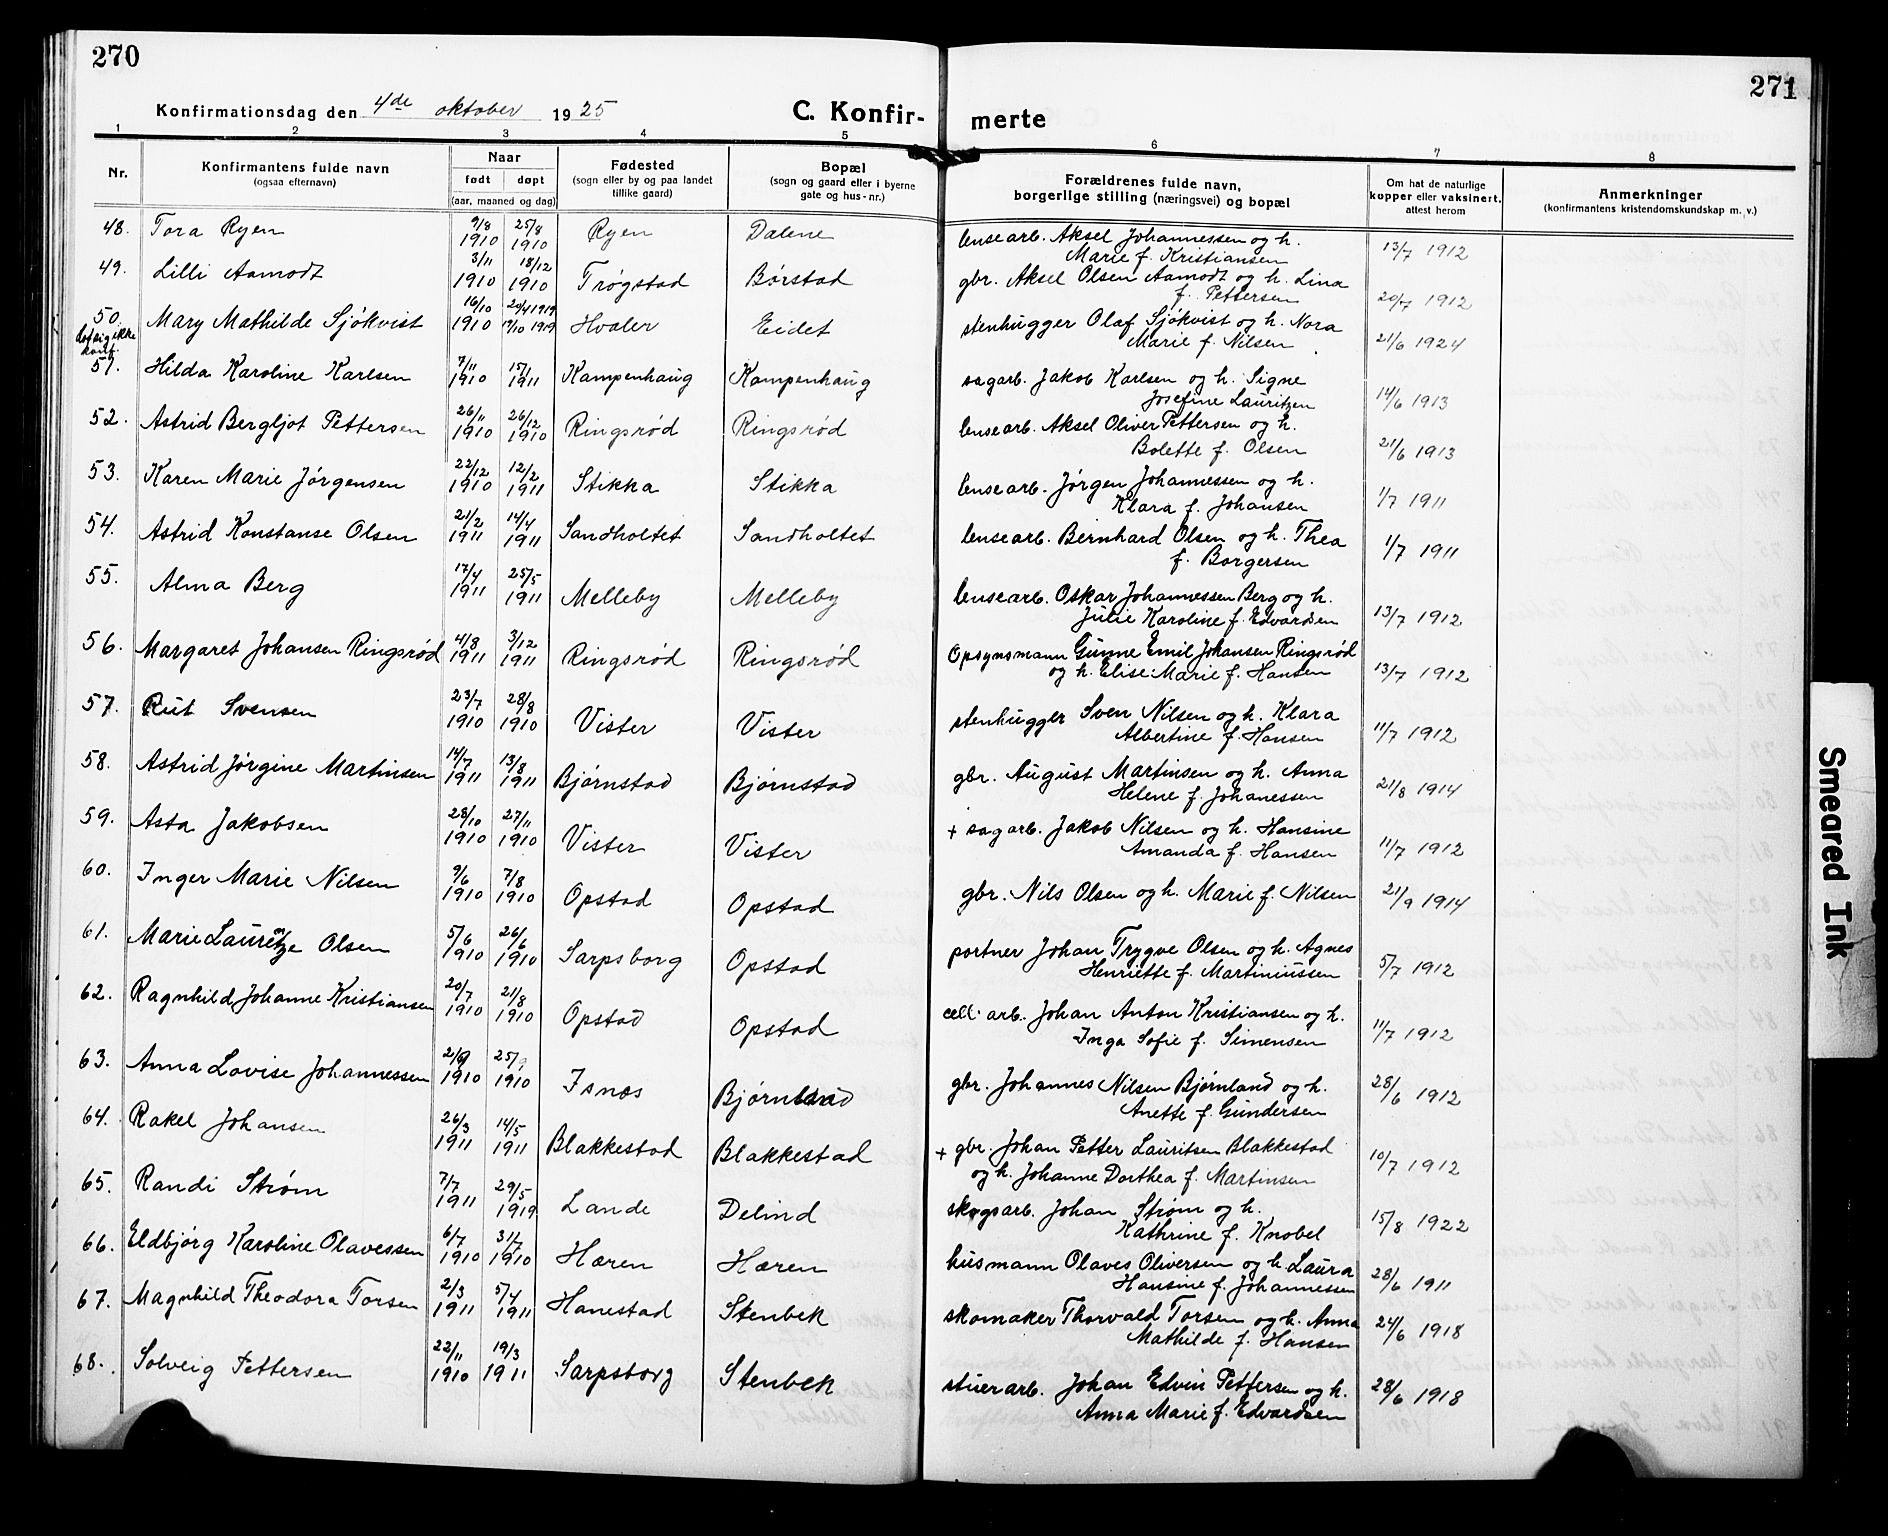 270
271
Konfirmationsdag den 4de oktober 1925
C. Konfir- merte
1 2 3 4 5 6 7 8
Nr. Konfirmantens fulde navn (ogsaa efternavn) Naar født døpt (aar, maaned og dag) Fødested (sogn eller by og paa landet tillike gaard) Bopæl (sogn og gaard eller i byerne gate og hus-nr.) Forældrenes fulde navn, borgerlige stilling (næringsvei) og bopæl Om hat de naturlige kopper eller vaksinert, attest herom Anmerkninger (konfirmantens kristendomskundskap m. v.)
48. Tora Ryen 9/8 1910 25/8 1910 Ryen Dalene lensearb. Aksel Johannessen og h. Marie f. Kristiansen 13/7 1912
49. Lilli Aamodt 3/11 1910 18/12 1910 Trøgstad Børstad gbr. Aksel Olsen Aamodt og h. Lina f. Pettersen 20/7 1912
50. lot sig ikke konf. Mary Mathilde Sjökvist 16/10 1910 20/4 1919 1919 Hvaler Eidet stenhugger Olaf Sjökvist og h. Nora Marie f. Nilsen 21/6 1924
51. Hilda Karoline Karlsen 7/11 1910 15/1 1911 Kampenhaug Kampenhaug sagarb. Jakob Karlsen og h. Signe Josefine Lauritzen 14/6 1913
52. Astrid Bergljot Pettersen 26/11 1910 26/12 1910 Ringsrød Ringsrød lensearb. Aksel Oliver Pettersen og h. Bolette f. Olsen 21/6 1913
53. Karen Marie Jørgensen 22/12 1910 12/2 1911 Stikka Stikka lensearb. Jørgen Johannessen og h. Klara f. Johansen 1/7 1911
54. Astrid Konstanse Olsen 21/2 1911 14/4 1911 Sandholtet Sandholtet lensearb. Bernhard Olsen og h. Thea f. Borgersen 1/7 1911
55. Alma Berg 17/4 1911 25/5 1911 Melleby Melleby lensearb. Oskar Johannessen Berg og h. Julie Karoline f. Edvardsen 13/7 1912
56. Margaret Johansen Ringsrød 4/8 1911 3/12 1911 Ringsrød Ringsrød Opsynsmann Gunne Emil Johansen Ringsrød og h. Elise Marie f. Hansen 13/7 1912
57. Rut Svensen 23/7 1910 28/8 1910 Vister Vister stenhugger Sven Nilsen og h. Klara Albertine f. Hansen 11/7 1912
58. Astrid Jørgine Martinsen 14/7 1911 13/8 1911 Bjørnstad Bjørnstad gbr. August Martinsen og h. Anna Helene f. Johanessen 21/8 1914
59. Asta Jakobsen 28/10 1910 27/11 1910 Vister Vister + sagarb. Jakob Nilsen og h. Hansine Amanda f. Hansen 11/7 1912
60. Inger Marie Nilsen 9/6 1910 7/8 1910 Opstad Opstad gbr. Nils Olsen og h. Marie f. Nilsen 21/9 1914
61. Marie Olsen 5/6 1910 26/6 1910 Sarpsborg Opstad portner Johan Trygve Olsen og h. Agnes Henriette f. Martiniussen 5/7 1912
62. Ragnhild Johanne Kristiansen 20/7 1910 21/8 1910 Opstad Opstad cell. arb. Johan Anton Kristiansen og h. Inga Sofie f. Simensen 11/7 1912
63. Anna Lovise Johannessen 1910 25/9 1910 Isnæs Bjørnland gbr. Johannes Nilsen Bjørnland og h. Anette f. Gundersen 28/6 1912
64. Rakel Johansen 26/3 1911 14/5 1911 Blakkestad Blakkestad + gbr. Johan Petter Lauritsen Blakkestad og h. Johanne Dorthea f. Martinsen 10/7 1912
65. Randi Strøm 7/7 1911 29/5 1919 Lande Delind skogsarb. Johan Strøm og h. Kathrine f. Knobel 15/8 1922
66. Eldbjørg Karoline Olavessen 6/7 1910 31/7 1910 Hæren Hæren husmann Olaves Oliversen og h. Laura Hansine f. Johannessen 28/6 1911
67. Magnhild Theodora Torsen 2/3 1911 5/4 1911 Hanestad Stenbek skomaker Thorvald Torsen og h. Anna Mathilde f. Hansen 24/6 1918
68. Solveig Pettersen 22/11 1910 19/3 1911 Sarpsborg Stenbek stuerarb. Johan Edvin Pettersen og h. Anna Marie f. Edvardsen 28/6 1918
Smeared Ink